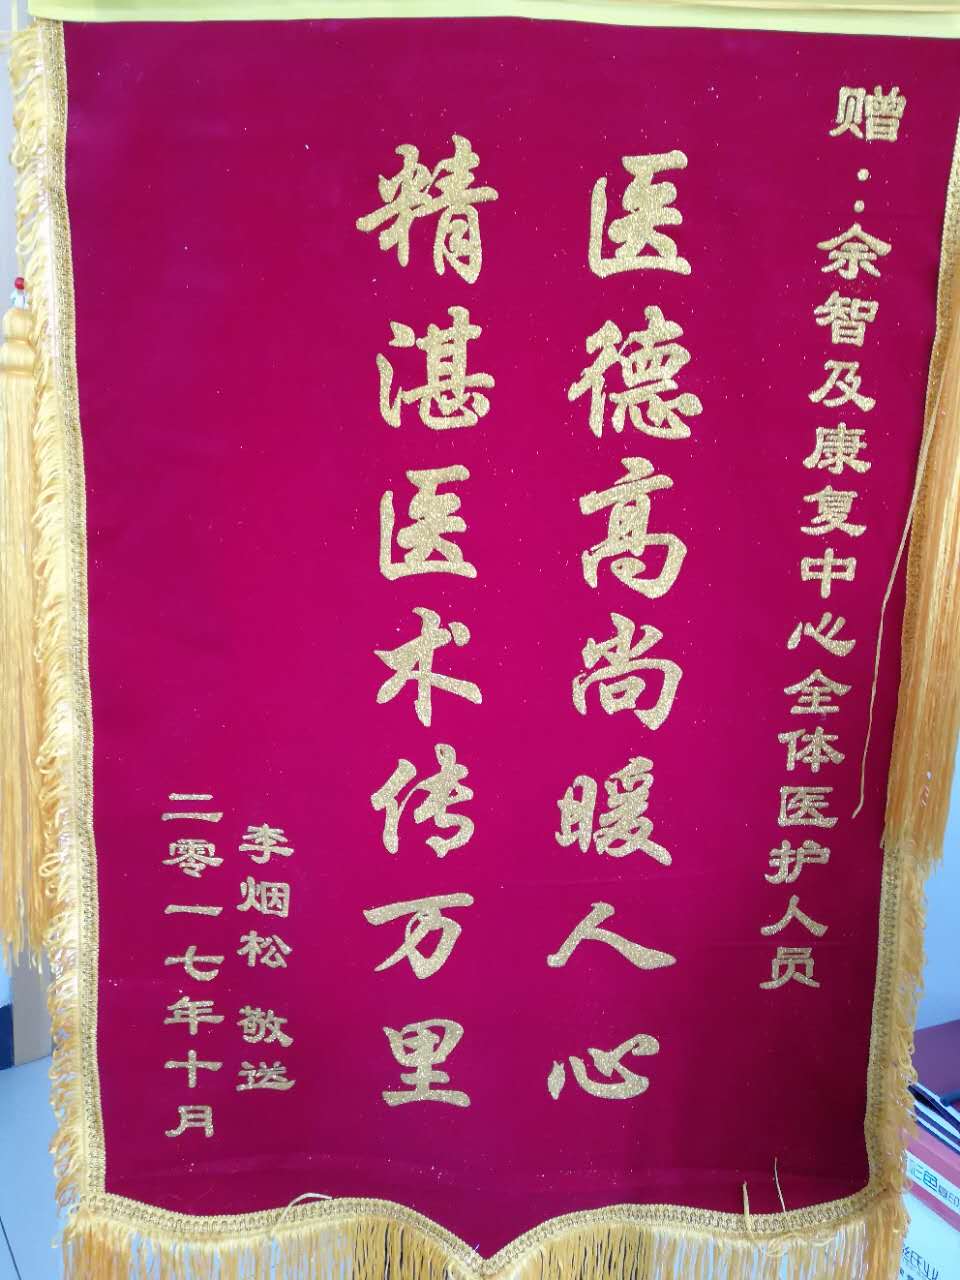 赠：余智及康复中心全体医护人员
医德高尚暖人心
精湛医术传万里
李烟松 敬送
二零一七年十月